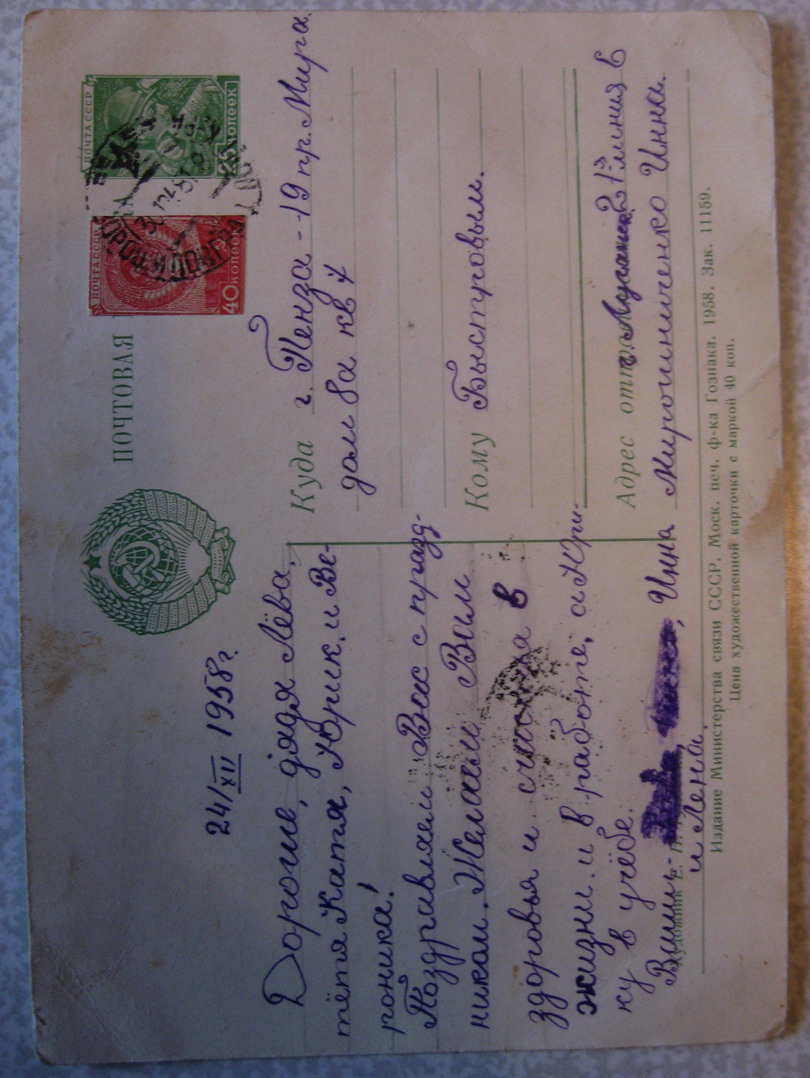 ПОЧТОВАЯ
ПОЧТА СССР
25 КОПЕЕК
ПОЧТА СССР
40 КОПЕЕК
24/XII 1958 г.
Дорогие, дядя Лёва,
тётя Катя, Юрик, и Ве-
роника!
Поздравляем Вас с празд-
ником. Желаем Вам
здоровья и счастья в
жизни и в работе, а Юри-
ку в учёбе.
Ваши
Инна
и Лена.
Куда г. Пенза - 19 пр. Мира.
дом 8а кв 4
Кому Быстровым.
Адрес отп г. Луганск 21 линия 6
Мирошниченко Инна.
Художник Е.
Издание Министерства связи СССР. Моск. печ. ф-ка Гознака. 1958. Зак. 11159.
Цена художественной карточки с маркой 40 коп.